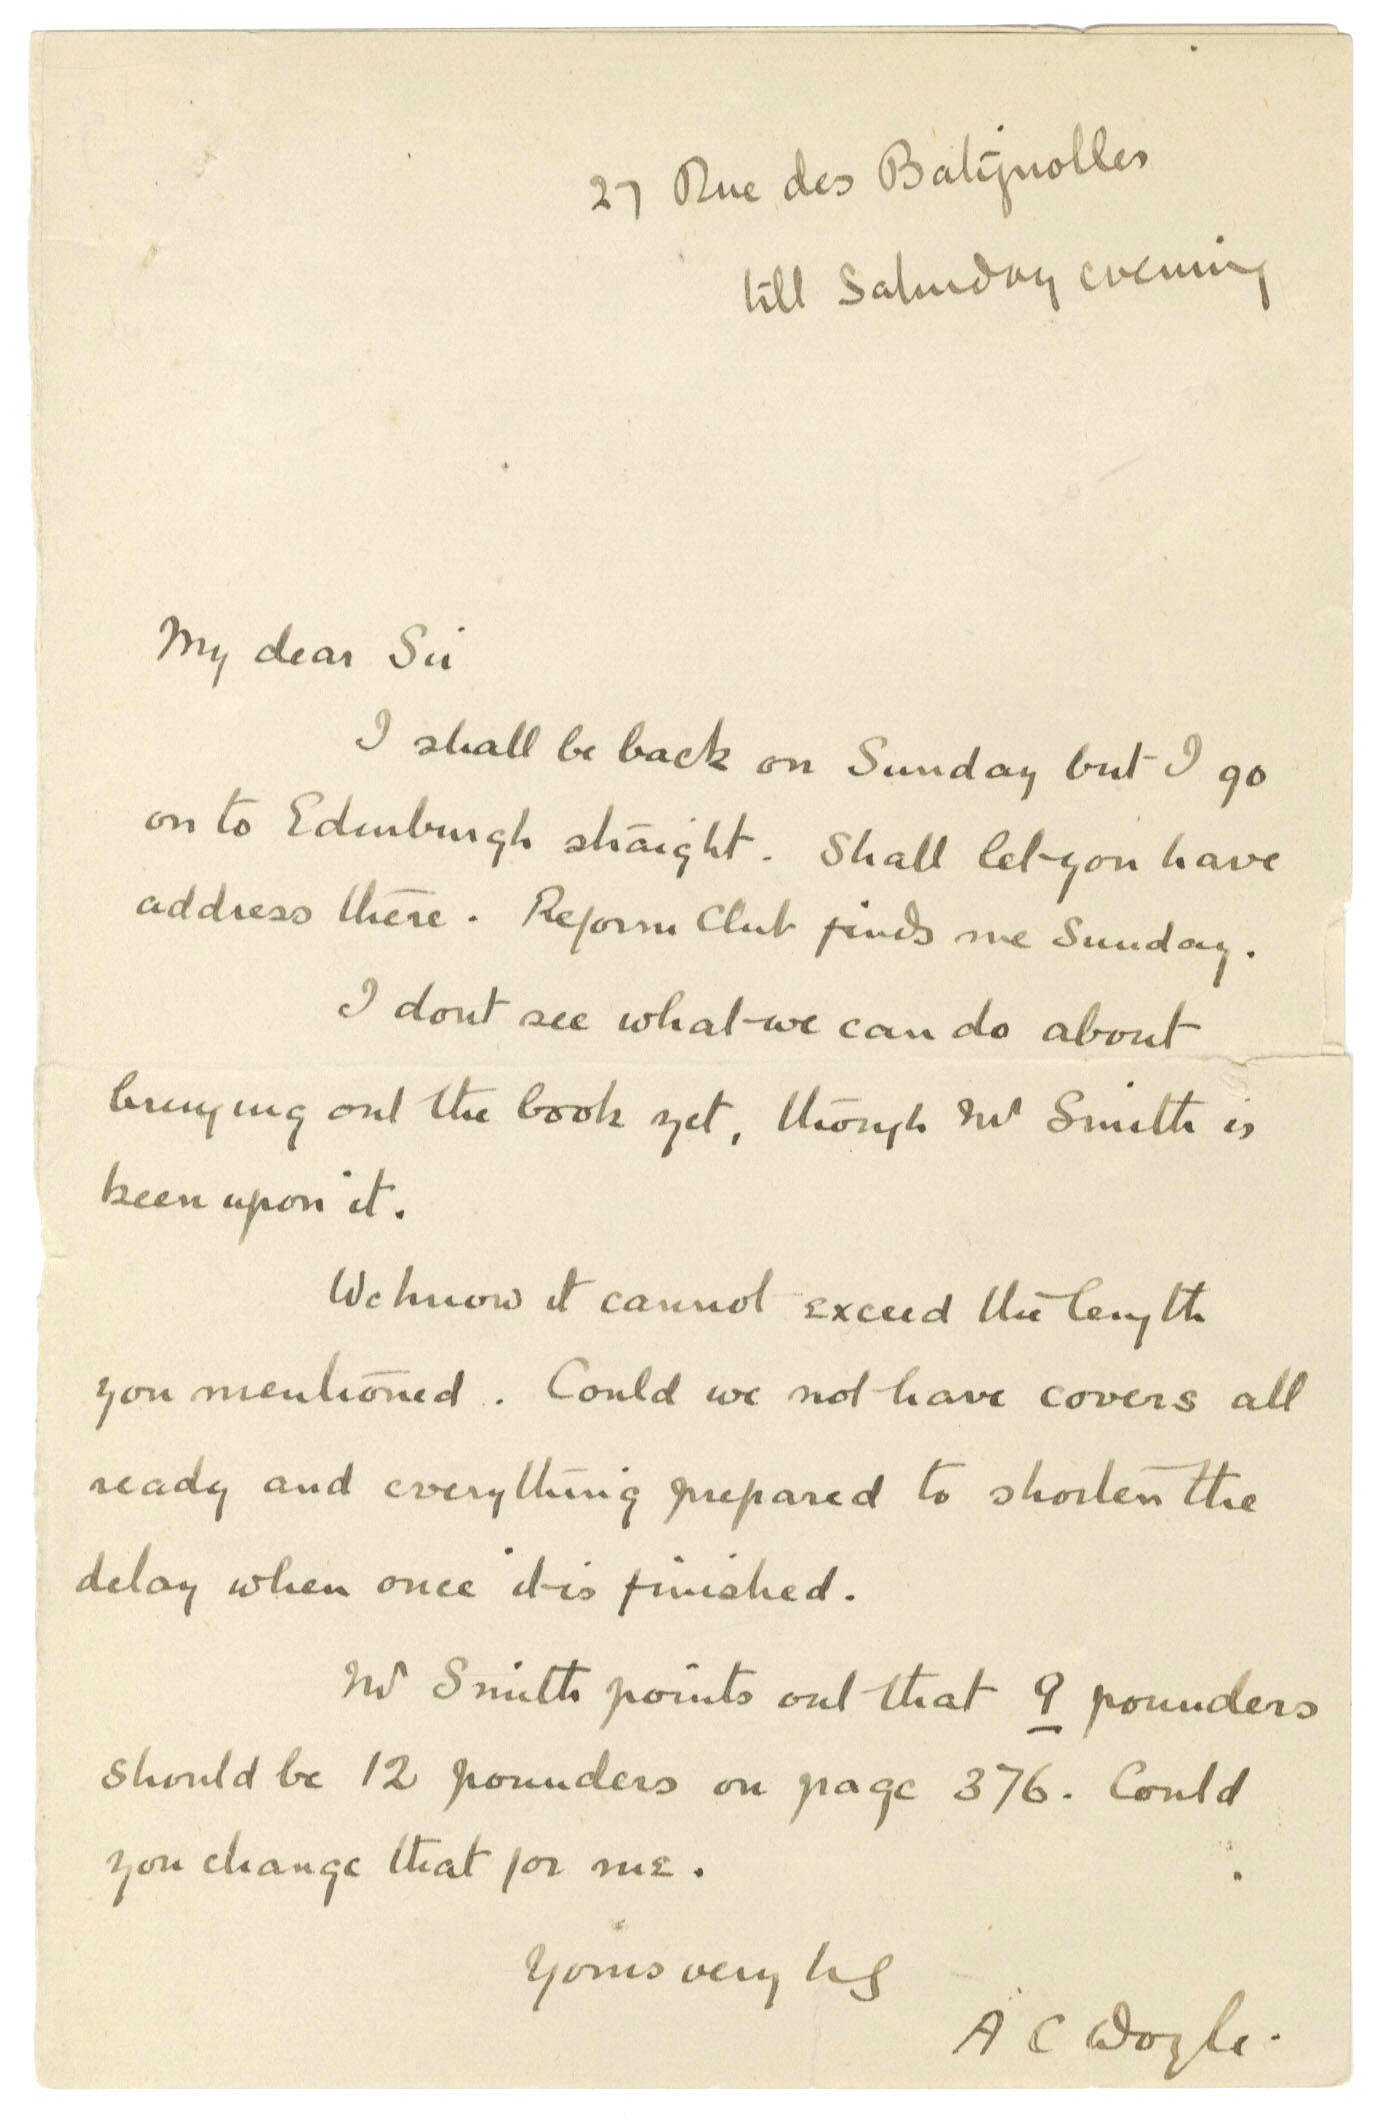 27 Rue des Batignolles
till Saturday evening
My dear Sir
I shall be back on Sunday but I go
on to Edinburgh straight. Shall let you have
address there. Reform Club finds me Sunday.
I dont see what we can do about
bringing out the book yet, though Mr Smith is
keen upon it.
We know it cannot exceed the length
you mentioned. Could we not have covers all
ready and everything prepared to shorten the
delay when once it is finished.
Mr Smith points out that 9 pounders
should be 12 pounders on page 376. Could
you change that for me.
Yours very
A C Doyle.